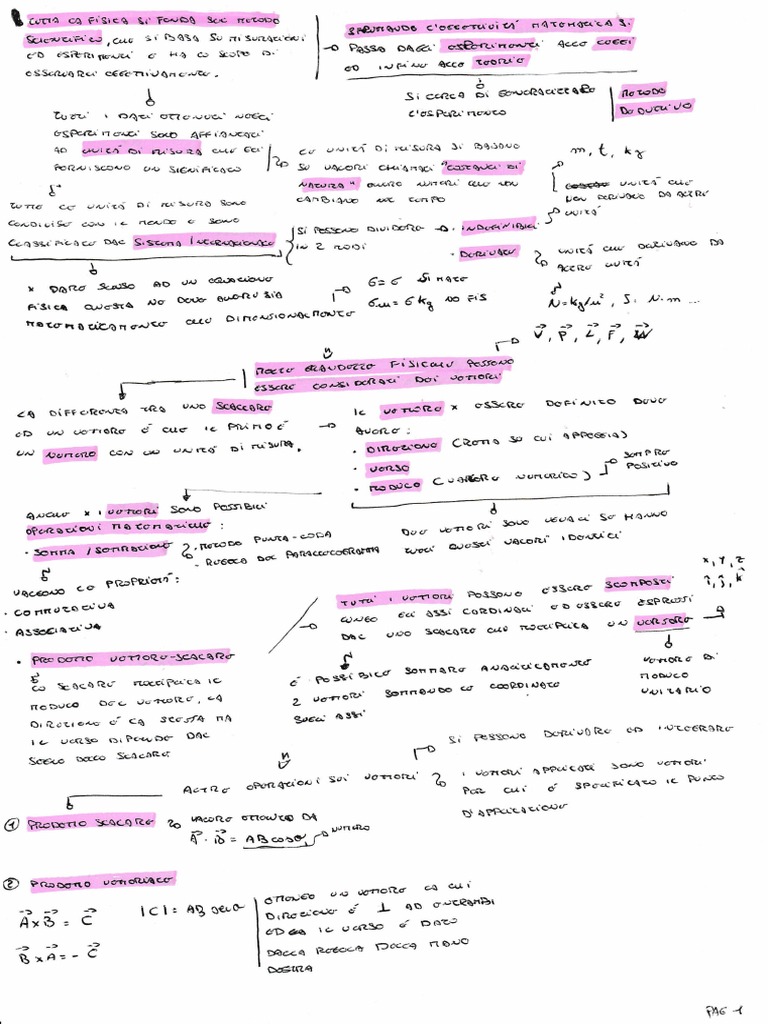 TUTTA LA FISICA SI FONDA SUL METODO
SCIENTIFICO, CHE SI BASA SU MISURAZIONI
ED ESPERIMENTI E HA LO SCOPO DI
OSSERVARE OGGETTIVAMENTE.
SFRUTTANDO L'OGGETTIVITÁ MATEMATICA SI
PASSA DAGLI ESPERIMENTI ALLE LEGGI
ED INFINE ALLE TEORIE
SI CERCA DI GENERALIZZARE
L'ESPERIMENTO
METODO
DEDUTTIVO
TUTTI I DATI OTTENUTI NEGLI
ESPERIMENTI SONO AFFIANCATI
AD UNITÁ DI MISURA CHE GLI
FORNISCONO UN SIGNIFICATO
LE UNITÁ DI MISURA SI BASANO
SU VALORI CHIAMATI "COSTANTI DI
NATURA" OVVERO NUMERI CHE NON
CAMBIANO NEL TEMPO
m, t, kg
UNITÁ CHE
NON DERIVANO DA ALTRE
UNITÁ
TUTTE LE UNITÁ DI MISURA SONO
CONDIVISE CON IL MONDO E SONO
CLASSIFICATE DAL SISTEMA INTERNAZIONALE
SI POSSONO DIVIDERE
IN 2 MODI
• INDEFINIBILI
• DERIVATE
UNITÁ CHE DERIVANO DA
ALTRE UNITÁ
N=kg/m², J: N·m ...
x DARE SENSO AD UN EQUAZIONE
FISICA QUESTA NE DEVE AVERE SIA
MATEMATICAMENTE CHE DIMENSIONALMENTE
6=6 SI MATE
6m=6kg NO FIS
V, P, L, F, W
MOLTE GRANDEZZE FISICHE POSSONO
ESSERE CONSIDERATE DEI VETTORI
LA DIFFERENZA TRA UNO SCALARE
ED UN VETTORE É CHE IL PRIMO É
UN NUMERO CON UN UNITÁ DI MISURA.
IL VETTORE x ESSERE DEFINITO DEVE
AVERE:
• DIREZIONE (RETTA SU CUI APPOGGIA)
• VERSO
• MODULO (VALORE NUMERICO)
SEMPRE
POSITIVO
ANCHE x I VETTORI SONO POSSIBILI
OPERAZIONI MATEMATICHE:
• SOMMA / SOTTRAZIONE
• METODO PUNTA-CODA
• REGOLA DEL PARALLELOGRAMMA
DUE VETTORI SONO UGUALI SE HANNO
TUTTI QUESTI VALORI IDENTICI
VALGONO LE PROPRIETÁ:
• COMMUTATIVA
• ASSOCIATIVA
TUTTI I VETTORI POSSONO ESSERE SCOMPOSTI
LUNGO GLI ASSI CARDINALI ED ESSERE ESPRESSI
DAL UNO SCALARE CHE MOLTIPLICA UN VERSORE
x, y, z
î, ĵ, k̂
VETTORE DI
MODULO
UNITARIO
• PRODOTTO VETTORE-SCALARE
LO SCALARE MOLTIPLICA IL
MODULO DEL VETTORE, LA
DIREZIONE É LA STESSA MA
IL VERSO DIPENDE DAL
SEGNO DELLO SCALARE
É POSSIBILE SOMMARE ANALITICAMENTE
2 VETTORI SOMMANDO LE COORDINATE
SUGLI ASSI
ALTRE OPERAZIONI SUI VETTORI
SI POSSONO DERIVARE ED INTEGRARE
I VETTORI APPLICATI SONO VETTORI
PER CUI É SPECIFICATO IL PUNTO
D'APPLICAZIONE
① PRODOTTO SCALARE
VALORE OTTENUTO DA
A · B = ABcosθ
NUMERO
② PRODOTTO VETTORIALE
A x B = C
B x A = - C
|C| = AB senθ
OTTENGO UN VETTORE LA CUI
DIREZIONE É ⊥ AD ENTRAMBI
ED IL VERSO É DATO
DALLA REGOLA DELLA MANO
DESTRA
PAG 1